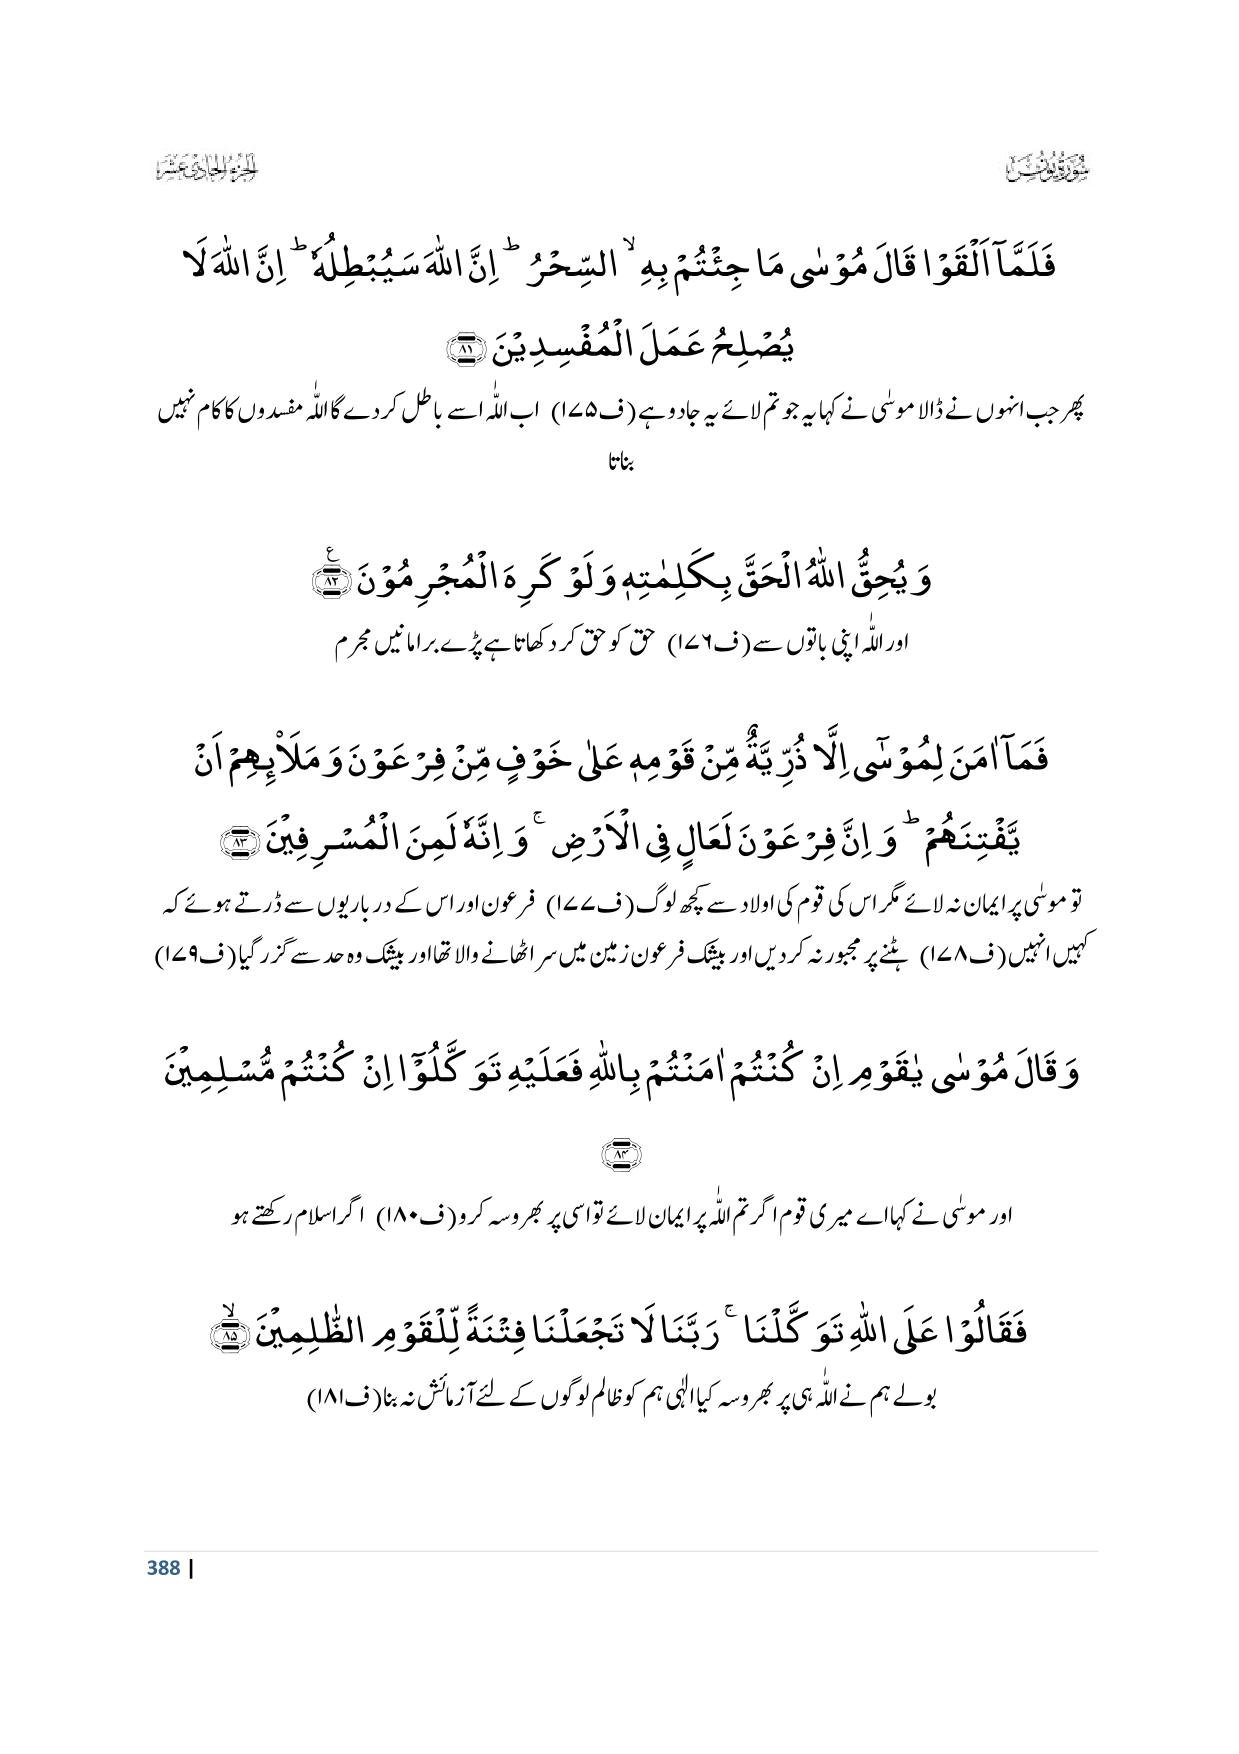 سُوْرَةُ یُوْنُس
الجزء الحادی عشر
فَلَمَّاۤ اَلْقَوْا قَالَ مُوْسٰی مَا جِئْتُمْ بِهِ ۙ السِّحْرُ ؕ اِنَّ اللّٰهَ سَیُبْطِلُهٗ ؕ اِنَّ اللّٰهَ لَا
یُصْلِحُ عَمَلَ الْمُفْسِدِیْنَ ﴿۸۱﴾
پھر جب انہوں نے ڈالا موسٰی نے کہا یہ جو تم لائے یہ جادو ہے (ف۱۷۵) اب اللّٰہ اسے باطل کر دے گا اللّٰہ مفسدوں کا کام نہیں
بناتا
وَ یُحِقُّ اللّٰهُ الْحَقَّ بِكَلِمٰتِهٖ وَ لَوْ كَرِهَ الْمُجْرِمُوْنَ ﴿۸۲﴾ ع
اور اللّٰہ اپنی باتوں سے (ف۱۷۶) حق کو حق کر دکھاتا ہے پڑے برا مانیں مجرم
فَمَاۤ اٰمَنَ لِمُوْسٰۤی اِلَّا ذُرِّیَّةٌ مِّنْ قَوْمِهٖ عَلٰی خَوْفٍ مِّنْ فِرْعَوْنَ وَ مَلَاۡئِهِمْ اَنْ
یَّفْتِنَهُمْ ؕ وَ اِنَّ فِرْعَوْنَ لَعَالٍ فِی الْاَرْضِ ۚ وَ اِنَّهٗ لَمِنَ الْمُسْرِفِیْنَ ﴿۸۳﴾
تو موسٰی پر ایمان نہ لائے مگر اس کی قوم کی اولاد سے کچھ لوگ (ف۱۷۷) فرعون اور اس کے درباریوں سے ڈرتے ہوئے کہ
کہیں انہیں (ف۱۷۸) ہٹنے پر مجبور نہ کر دیں اور بیشک فرعون زمین میں سر اٹھانے والا تھا اور بیشک وہ حد سے گزر گیا (ف۱۷۹)
وَ قَالَ مُوْسٰی یٰقَوْمِ اِنْ كُنْتُمْ اٰمَنْتُمْ بِاللّٰهِ فَعَلَیْهِ تَوَكَّلُوْۤا اِنْ كُنْتُمْ مُّسْلِمِیْنَ
﴿۸۴﴾
اور موسٰی نے کہا اے میری قوم اگر تم اللّٰہ پر ایمان لائے تو اسی پر بھروسہ کرو (ف۱۸۰) اگر اسلام رکھتے ہو
فَقَالُوْا عَلَی اللّٰهِ تَوَكَّلْنَا ۚ رَبَّنَا لَا تَجْعَلْنَا فِتْنَةً لِّلْقَوْمِ الظّٰلِمِیْنَ ﴿۸۵﴾ ۙ
بولے ہم نے اللّٰہ ہی پر بھروسہ کیا الٰہی ہم کو ظالم لوگوں کے لئے آزمائش نہ بنا (ف۱۸۱)
388 |